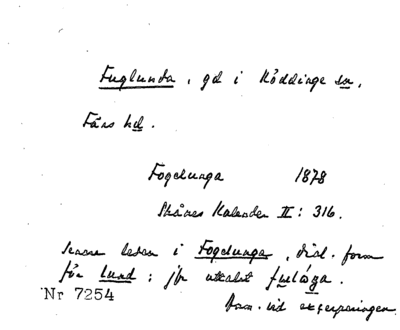 Fuglunda, gd i Röddinge sn,
Färs hd.
Fogelunga 1878
Skånes Kalender II: 316.
Senare leden i Fogelunga, dial. form
för lund; jfr uttalet
Nr 7254
Anm. vid excerperingen